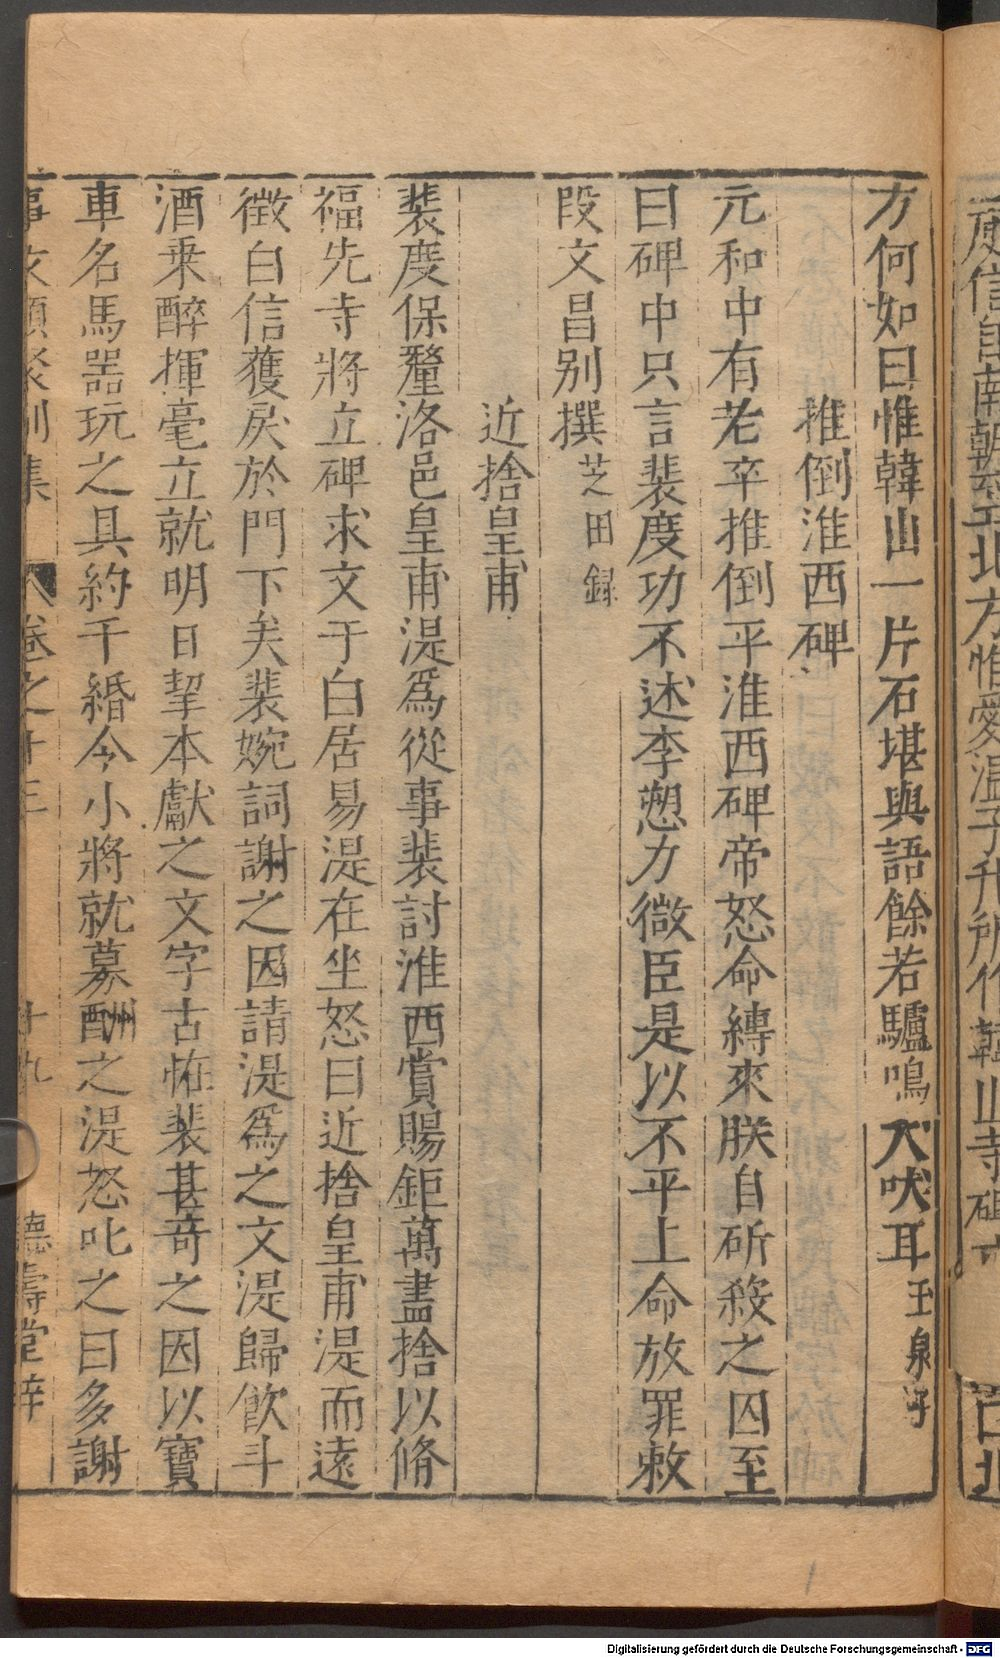 方何如曰惟韓山一片石堪與語餘若驢鳴犬吠耳玉泉子
推倒淮西碑
元和中有老卒推倒平淮西碑帝怒命縳來朕自斫殺之囚至
曰碑中只言裴度功不述李愬力微臣是以不平上命放罪敕
段文昌别撰芝田録
近捨皇甫
裴度保釐洛邑皇甫湜爲從事裴討淮西賞賜鉅萬盡捨以脩
福先寺將立碑求文于白居易湜在坐怒曰近捨皇甫湜而遠
徵白信獲戾於門下矣裴婉詞謝之因請湜爲之文湜歸飲斗
酒乗醉揮毫立就明日挈本獻之文字古怪裴甚奇之因以寶
車名馬器玩之具約千緡令小將就募酬之湜怒叱之曰多謝
事文類聚别集 卷之十三 十九 德壽堂梓
信自南朝至北方惟愛温子升所作韓山寺碑